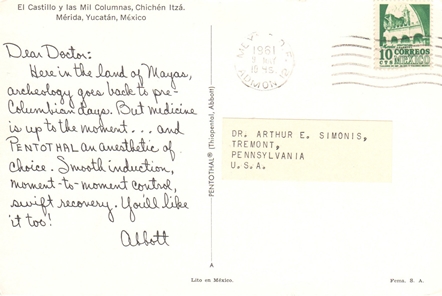 El Castillo y las Mil Columnas, Chichén Itzá.
Mérida, Yucatán, México
Dear Doctor:
Here in the land of Mayas,
archeology goes back to pre-
Columbian days. But medicine
is up to the moment... and
PENTOTHAL an anesthetic of
choice. Smooth induction,
moment-to-moment control,
swift recovery. You'll like
it too!
Abbott
PENTOTHAL® (Thiopental, Abbott)
A
1961
CORREOS
MEXICO
10
CTS
DR. ARTHUR E. SIMONIS,
TREMONT,
PENNSYLVANIA
U.S.A.
Lito en México.
Fores. S. A.